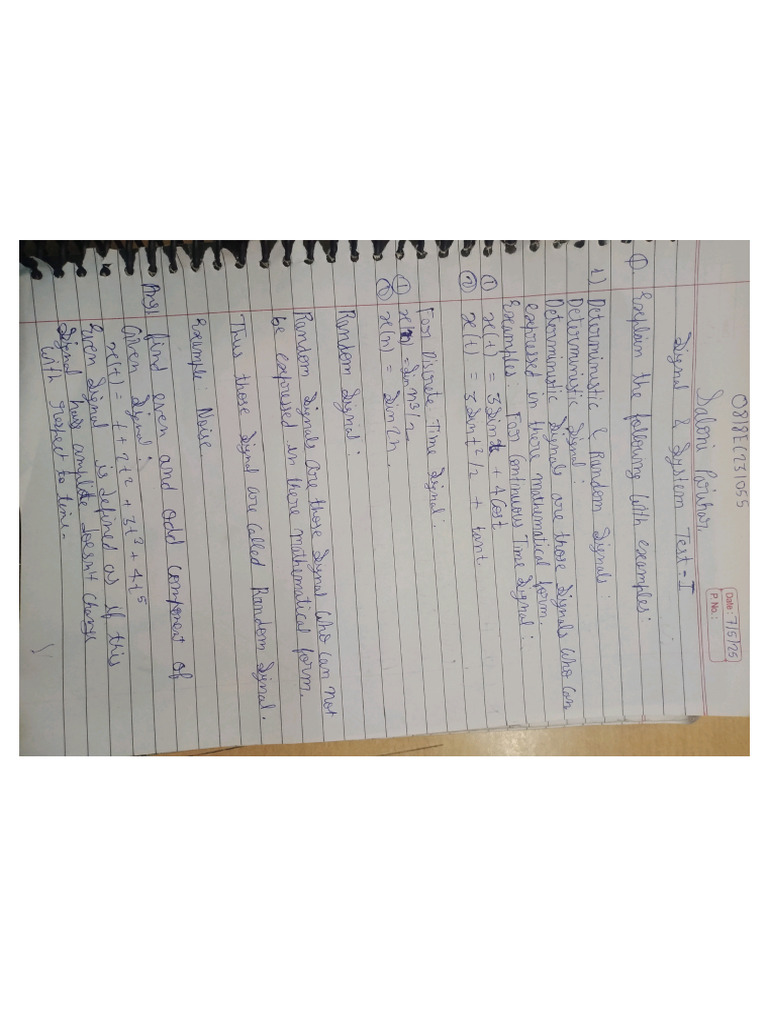 0818EC231055
Date: 7/5/25
P. No.:
Saloni Parihar.
Signal & System Test - I
Q. Explain the following with examples:
1) Deterministic & Random Signals:
Deterministic Signal:
Deterministic Signals are those Signals who can
expressed in there mathematical form.
Examples: For Continuous Time Signal:
① x(t) = 3Sint + 4Cost
② x(t) = 3Sint²/2 + tant.
For Discrete Time Signal:
① x(n) = Sin n3/2
② x(n) = Sin 2n.
Random Signal:
Random Signals are those Signal who can not
be expressed in there mathematical form.
Thus those Signal are called Random Signal.
Example: Noise.
Ans1 find even and odd component of
Given Signal:
x(t) = t + 2t² + 3t³ + 4t⁵
Even Signal is defined as if this
Signal has amplite doesn't change
with respect to time.